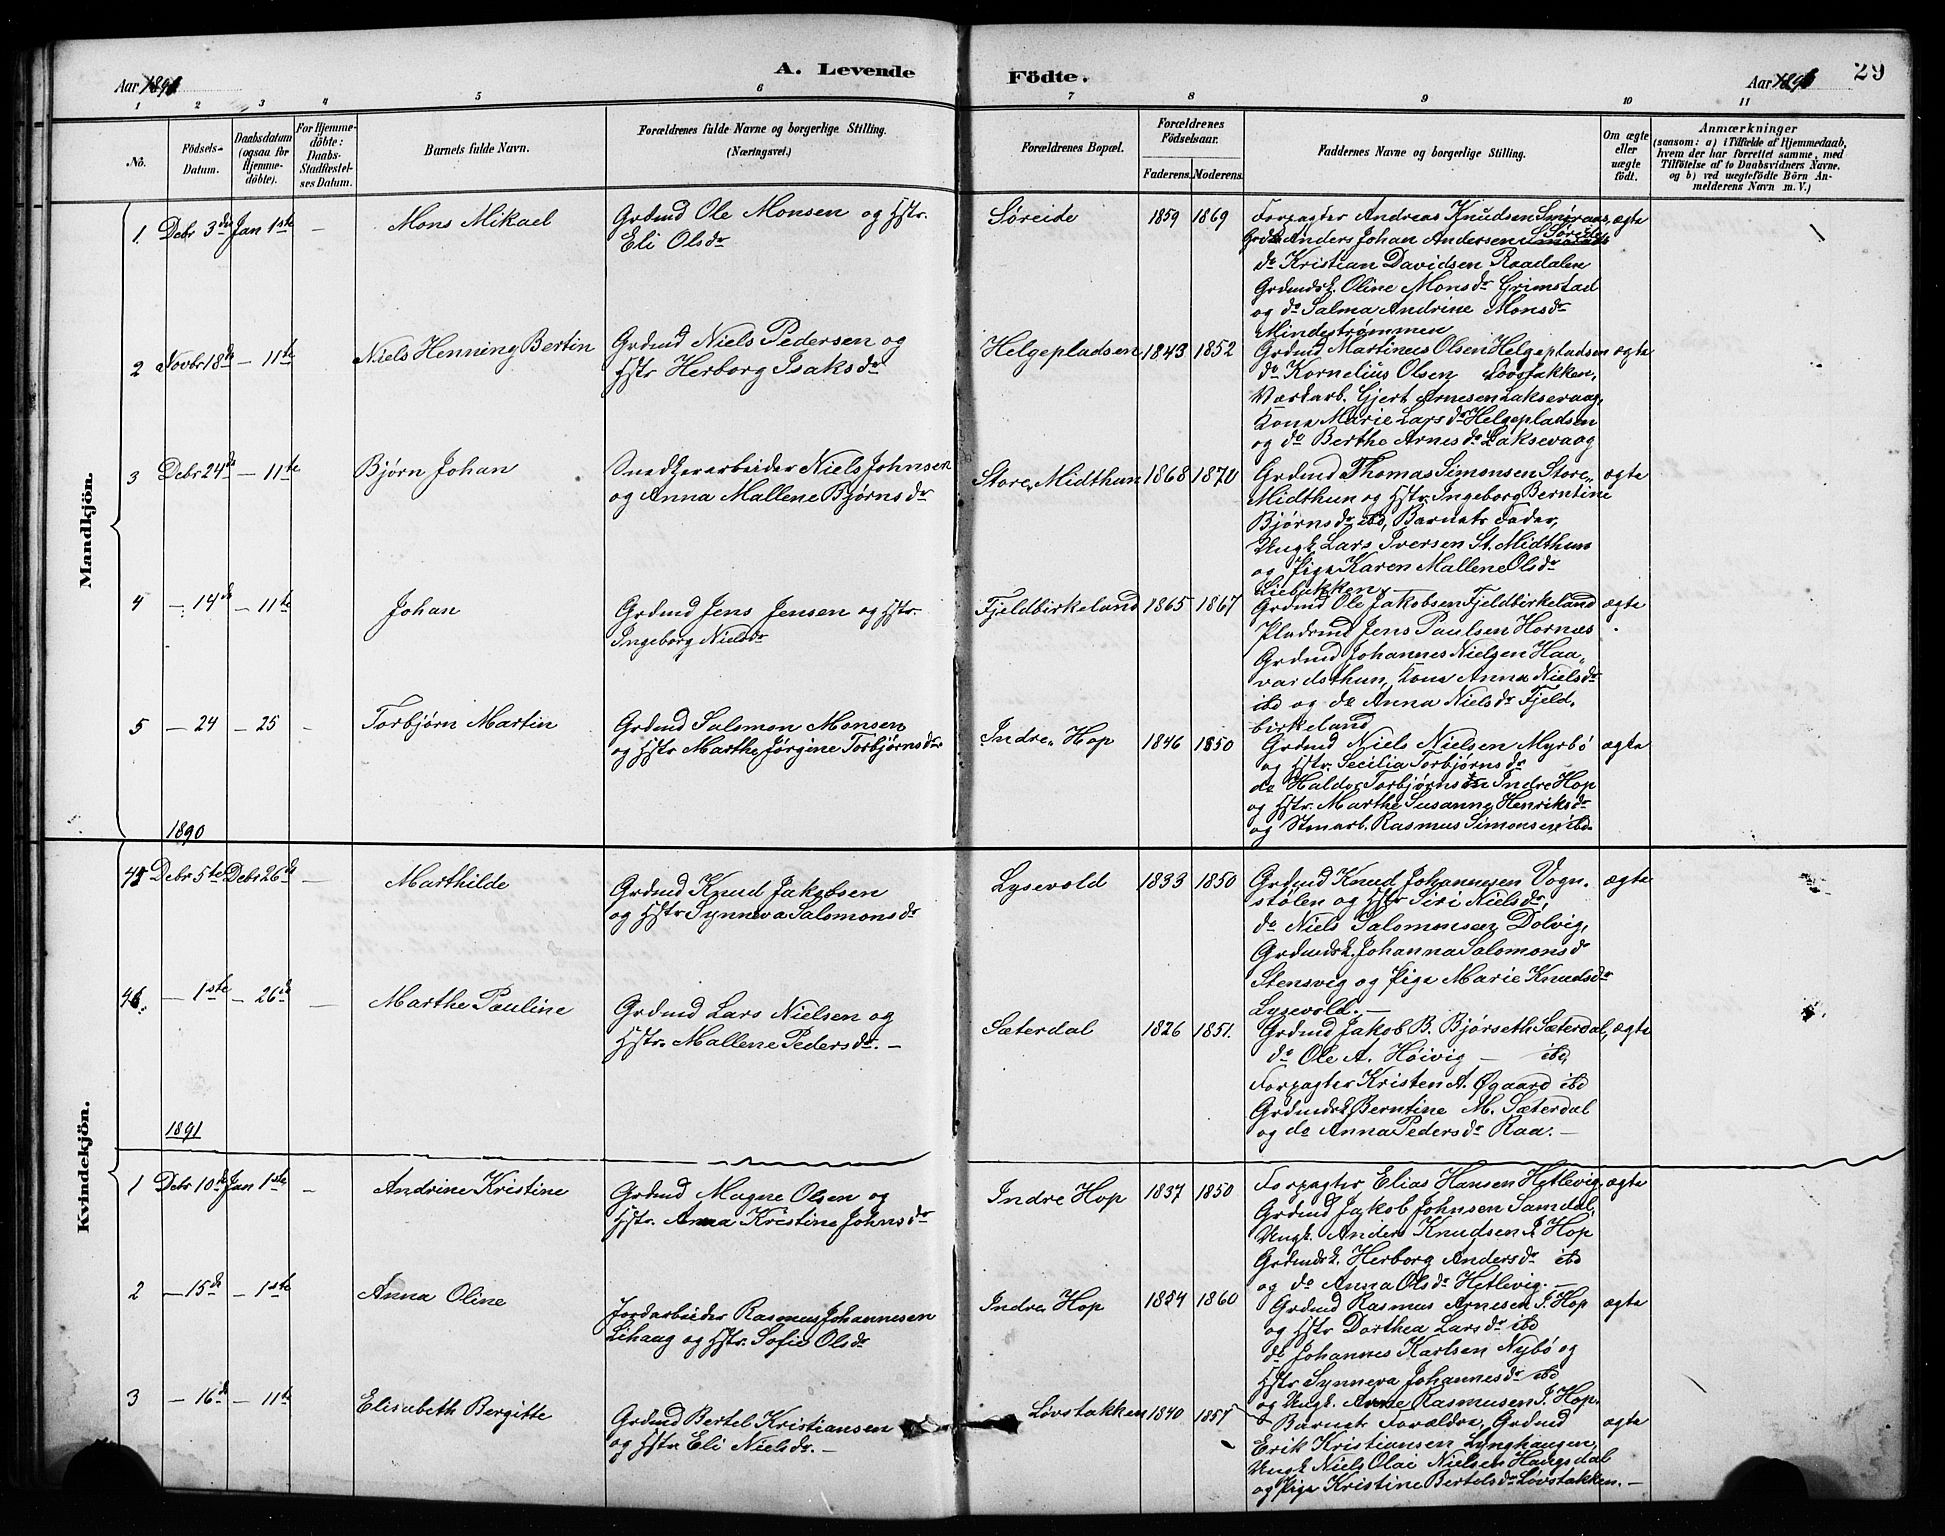 A. Levende
Födte.
29
Aar 1891
Aar 1891
1 2 3 4 5 6
7 8 9 10 11
No.
Födsels-
Datum.
Daabsdatum
(ogsaa for
Hjemme-
döbte).
For Hjemme-
döbte:
Daabs-
Stadfæstel-
ses Datum.
Barnets fulde Navn.
Forældrenes fulde Navne og borgerlige Stilling.
(Næringsvei.)
Forældrenes Bopæl.
Forældrenes
Födselsaar.
Faderens. Moderens.
Faddernes Navne og borgerlige Stilling.
Om ægte
eller
uægte
födt.
Anmærkninger
(saasom: a) i Tilfælde af Hjemmedaab,
hvem der har forrettet samme, med
Tilföielse af to Daabsvidners Navne.
og b) ved uægtefödte Börn An-
melderens Navn m. V.)
Mandkjön.
1 Debr 3die Jan 1ste – Mons Mikael
Grdmd Ole Monsen og Hstr.
Eli Olsdr
Søreide 1859 1869
Forpagter Andreas Knudsen Smøraas, ægte
Grdbr Anders Johan Andersen S. Søreide
do Kristian Davidsen Raadalen
Grdmdsk. Oline Monsdr Grimstad
og do Salma Andrine Monsdr
Mindestrømmen
2 Novbr 18de – 11te Niels Henning Bertin
Grdmd Niels Pedersen og
Hstr Herborg Isaksdr
Helgepladsen 1843 1852
Grdmd Martinus Olsen Helgepladsen ægte
do Kornelius Olsen Løvstakken,
Værkarb. Gjert Arnesen Laksevaag,
Kone Marie Larsdr Helgepladsen
og do Berthe Arnesdr Laksevaag
3 Debr 24de – 11te Bjørn Johan
Snedkerarbeider Niels Johnsen
og Anna Mallene Bjørnsdr
Store Midthun 1868 1870
Grdmd Thomas Simonsen Store- ægte
Midthun og Hstr. Ingeborg Berntine
Bjørnsdr ibd, Barnets Fader,
Ungk. Lars Iversen St. Midthun
og Pige Karen Mallene Olsdr
4 – 14de – 11te Johan
Grdmd Jens Jensen og Hstr.
Ingeborg Nielsdr
Fjeldbirkeland 1865 1867
Grdmd Ole Jakobsen Fjeldbirkeland ægte
Pladsmd Jens Paulsen Hornæs
Grdmd Johannes Nielsen Haa-
vardsthun, Kone Anna Nielsdr
ibd og do Anna Nielsdr Fjeld-
birkeland
5 – 24 – 25 – Torbjørn Martin
Grdmd Salomon Monsen
og Hstr Marthe Jørgine Torbjørnsdr
Indre Hop 1846 1850
Grdmd Niels Nielsen Myrbø ægte
og Hstr. Secilia Torbjørnsdr
do Haldor Torbjørnsen Indre Hop
og Hstr. Marthe Susanne Henriksdr
og Stenarb. Rasmus Simonsen ibd
1890
Kvindekjön.
45 Debr 5te Debr 26de – Marthilde
Grdmd Knud Jakobsen
og Hstr Synneva Salomonsdr
Lysevold 1833 1850
Grdmd Knud Johannesen Vogn- ægte
stølen og Hstr Siri Nielsdr,
do Niels Salomonsen Dolvig,
Grdmdsk. Johanna Salomonsdr
Stensvig og Pige Marie Knudsdr
Lysevold. –
46. – 1ste – 26de – Marthe Pauline
Grdmd Lars Nielsen og
Hstr. Mallene Pedersdr. –
Sæterdal 1826 1851.
Grdmd Jakob B. Bjørseth Sæterdal, ægte
do Ole A. Høivig – ibd
Forpagter Kristen A. Øgaard ibd
Grdmdsk. Berntine M. Sæterdal
og do Anna Pedersdr Raa. –
1891
1 Debr 10de Jan 1ste – Andrine Kristine
Grdmd Magne Olsen og
Hstr. Anna Kristine Johnsdr
Indre Hop 1837 1850
Forpagter Elias Hansen Hetlevig, ægte
Grdmd Jakob Johnsen Samdal,
Ungk. Anders Knudsen I. Hop
Grdmdsk. Herborg Andersdr ibd
og do Anna Olsdr Hetlevig. –
2 – 15de – 1ste Anna Oline
Jordarbeider Rasmus Johannesen
Lihaug og Hstr. Sofie Olsdr
Indre Hop 1854 1860
Grdmd Rasmus Arnesen I. Hop ægte
og Hstr Dorthea Larsdr ibd
do Johannes Karlsen Nybø og
Hstr Synneva Johannesdr ibd
og Ungk. Arne Rasmusen I. Hop.
3 – 16de – 11te Elisabeth Bergitte
Grdmd Bertel Kristiansen
og Hstr Eli Nielsdr. –
Løvstakken 1840 1857
Barnets Forældre, Grdmd ægte
Erik Kristiansen Lynghaugen,
Ungk. Niels Olai Nielsen Haugsdal
og Pige Kristine Bertelsdr Løvstakken. –